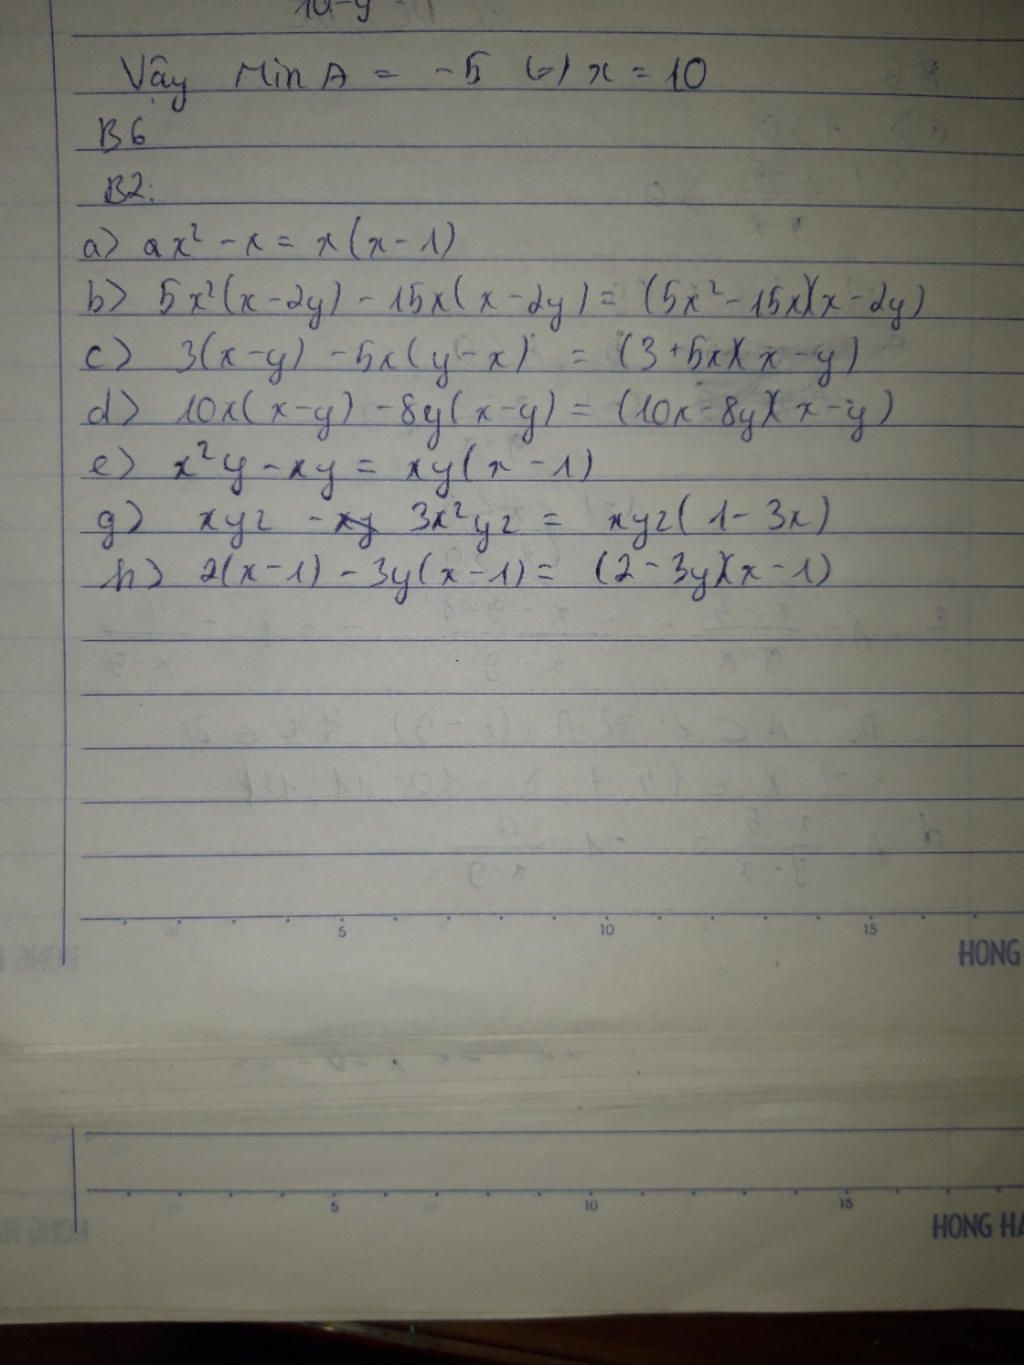 10-9
Vậy Min A = -5 (=) x = 10
B6
B2:
a) ax² - x = x(x-1)
b) 5x²(x-2y) - 15x(x-2y) = (5x²-15x)(x-2y)
c) 3(x-y) - 5x(y-x) = (3+5x)(x-y)
d) 10x(x-y) - 8y(x-y) = (10x-8y)(x-y)
e) x²y - xy = xy(x-1)
g) xyz - xy 3x²yz = xyz(1-3x)
h) 2(x-1) - 3y(x-1) = (2-3y)(x-1)
5 10 15
HONG
5 10 15
HONG HA